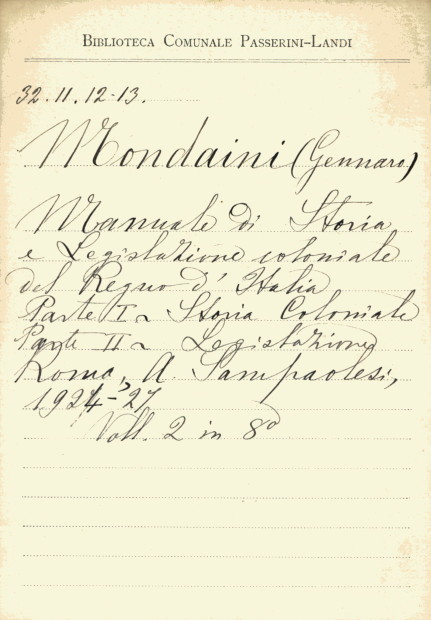 BIBLIOTECA COMUNALE PASSERINI-LANDI
32.11.12-13.
Mondaini (Gennaro)
Manuale di Storia
e Legislazione coloniale
del Regno d'Italia
Parte Iª Storia Coloniale
Parte IIª Legislazione
Roma, A. Sampaolesi,
1924-27
Voll. 2 in 8º